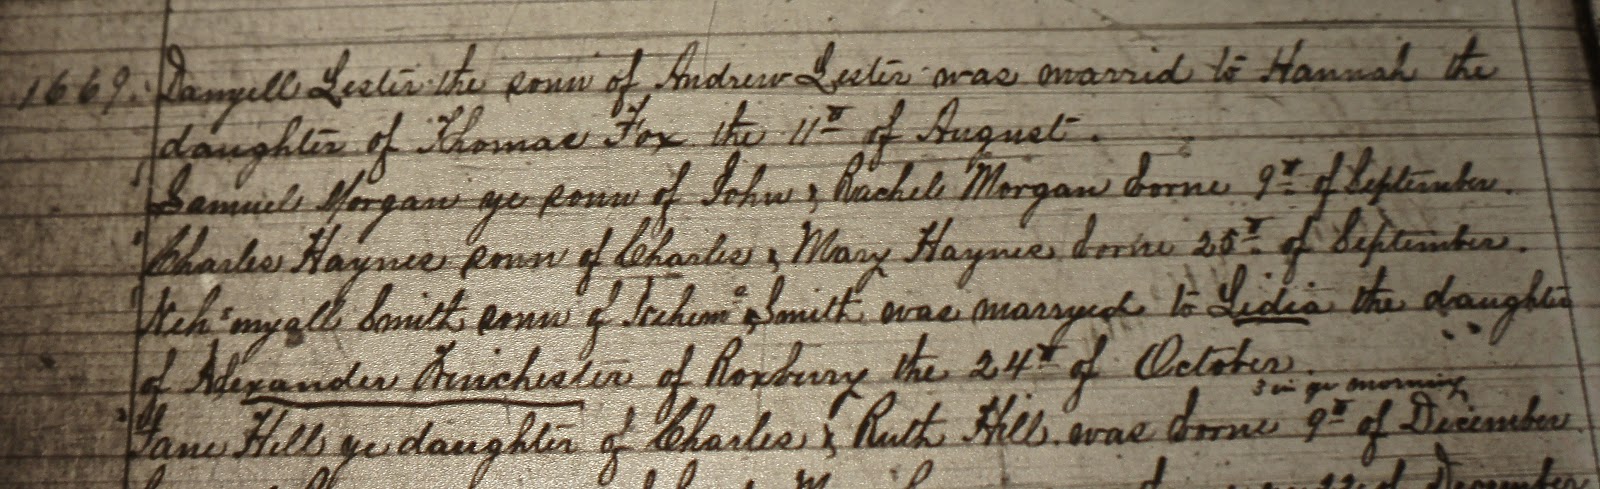 1669. Danyell Lester the sonn of Andrew Lester was marrid to Hannah the
daughter of Thomas Fox the 11th of August.
Samuel Morgan ye sonn of John & Rachel Morgan borne 9th of September.
Charles Haynes sonn of Charles & Mary Haynes borne 25th of September.
Neh:myall Smith sonn of Smith was marryed to Lidia the daughter
of Alexander Winchester of Roxbury the 24th of October.
3 in ye morning
Jane Hill ye daughter of Charles & Ruth Hill was borne 9th of December
December